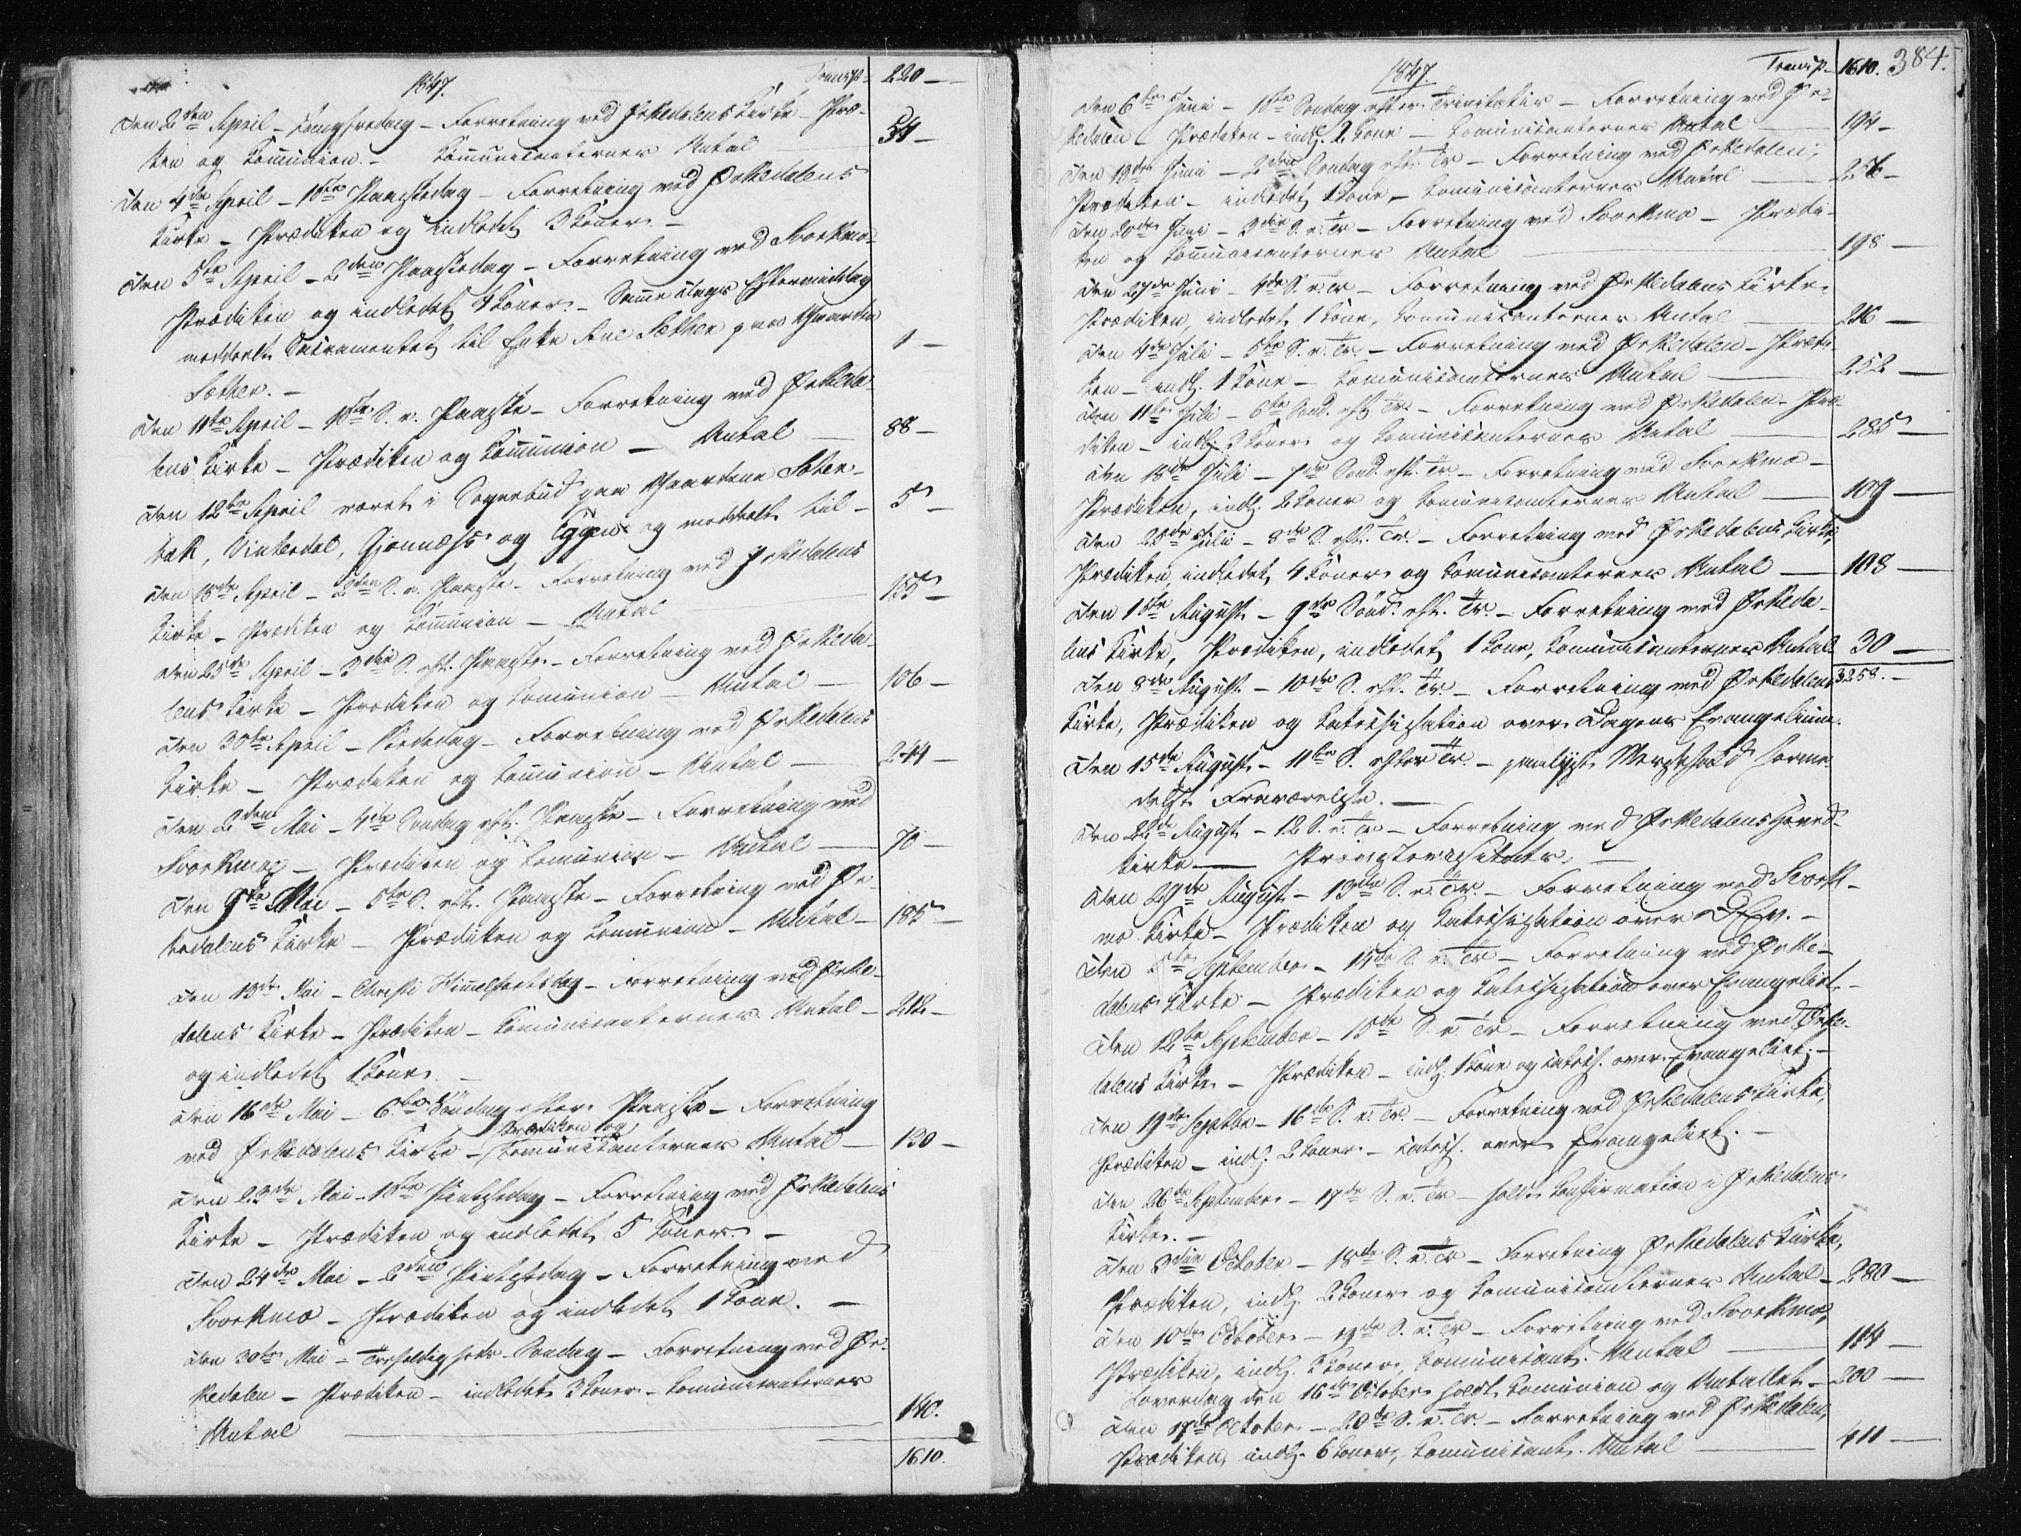 1847.
Transp. 220 –
Den 2den April – Langfredag – Forretning ved Ørkedalens Kirke – Præd-
ken og Communion. – Communicanternes Antal – 54 –
Den 4de April – 1ste Paaskedag – Forretning ved Ørkedalens
Kirke – Prædiken og indledet 3 Koner. –
Den 5te April – 2den Paaskedag – Forretning ved Svorkmo –
Prædiken og indledet 4 Koner. – Samme Dags Eftermiddag
meddeelt Sacramentet til Enke Ane Sæther paa Gaarden
Sæther. – 1 –
Den 11te April – 1ste S. e. Paaske – Forretning ved Ørkeda-
lens Kirke – Prædiken og Communion – Antal – 88 –
Den 12te April været i Sognebud paa Gaardene
Vinterdal, Gjønnes og Eggen og meddeelt til – 5 –
Den 18de April – 2den S. e. Paaske – Forretning ved Ørkedalens
Kirke – Prædiken og Communion – Antal – 155 –
Den 25de April – 3die S. eft. Paaske – Forretning ved Ørkeda-
lens Kirke – Prædiken og Communion – Antal – 106 –
Den 30te April – Bededag – Forretning ved Ørkedalens
Kirke – Prædiken og Communion – Antal – 244 –
Den 2den Mai – 4de Søndag eft. Paaske – Forretning ved
Svorkmo – Prædiken og Communion – Antal – 70 –
Den 9de Mai – 5te S. eft. Paaske – Forretning ved Ør-
kedalens Kirke – Prædiken og Communion – Antal – 185 –
Den 13de Mai – Christi Himmelfartsdag – Forretning ved Ørke-
dalens Kirke – Prædiken – Communicanternes Antal – 212 –
og indledet 1 Kone. –
Den 16de Mai – 6te Søndag efter Paaske – Forretning
ved Ørkedalens Kirke – Prædiken og Communicanternes Antal – 130 –
Den 23de Mai – 1ste Pintsedag – Forretning ved Ørkedalens
Kirke – Prædiken og indledet 5 Koner. –
Den 24de Mai – 2den Pintsedag – Forretning ved
Svorkmo – Prædiken og indledet 1 Kone. –
Den 30te Mai – Trefoldigheds-Søndag – Forretning ved Ør-
kedalen – Prædiken – indledet 3 Koner – Communicanternes
Antal – 140.
1610.
1847.
Transp. 1610. 384.
Den 6te Juni – 1ste Søndag efter Trinitatis – Forretning ved Ør-
kedalen – Prædiken – indl. 2 Kone – Communicanternes Antal – 194 –
Den 13de Juni – 2den Søndag eft. Tr. – Forretning ved Ørkedalen,
Prædiken – indledet 1 Kone, – Communicanternes Antal – 256 –
Den 20de Juni – 3die S. e. Tr. – Forretning ved Svorkmo – Prædi-
ken og Communicanternes Antal – 198 –
Den 27de Juni – 4de S. e. Tr. – Forretning ved Ørkedalens Kirke.
Prædiken, indledet 1 Kone, Communicanternes Antal – 216 –
Den 4de Juli – 5te S. e. Tr. – Forretning ved Ørkedalen – Prædi-
ken – indl. 1 Kone – Communicanternes Antal – 252 –
Den 11te Juli – 6te Sønd. eft. Tr. – Forretning ved Ørkedalen. Præ-
diken – indl. 3 Koner og Communicanternes Antal – 285 –
Den 18de Juli – 7de Sønd. eft. Tr. – Forretning ved Svorkmo –
Prædiken, indl. 2 Koner og Communicanternes Antal – 109 –
Den 25de Juli – 8de S. eft. Tr. – Forretning ved Ørkedalens Kirke,
Prædiken, indledet 4 Koner og Communicanternes Antal – 108 –
Den 1ste August – 9de Sønd. eft. Tr. – Forretning ved Ørkeda-
lens Kirke, Prædiken, indledet 1 Kone, Communicanternes Antal 30 –
Den 8de August – 10de S. eft. Tr. – Forretning ved Ørkedalens 3258. –
Kirke, Prædiken og Catechisation over Dagens Evangelium.
Den 15de August – 11te S. efter Tr. –
Den 22de August – 12 S. e. Tr. – Forretning ved Ørkedalens Hoved-
kirke –
Den 29de August – 13de S. e. Tr. – Forretning ved Svork-
mo Kirke – Prædiken og Catechisation over D. Ev. –
Den 5te September – 14de S. e. Tr. – Forretning ved Ørke-
dalens Kirke – Prædiken og Catechisation over Evangeliet –
Den 12te September – 15de S. e. Tr. – Forretning ved Ørke-
dalens Kirke – Prædiken – indl. 1 Kone og Catech. over Evangeliet. –
Den 19de Septbr – 16de S. e. Tr. – Forretning ved Ørkedalens Kirke,
Prædiken – indl. 2 Koner – Catech. over Evangeliet. –
Den 26de September – 17de S. e. Tr. – holdt Confirmation i Ørkedalens
Kirke. –
Den 3die October – 18de S. e. Tr. – Forretning Ørkedalens Kirke,
Prædiken, indl. 2 Koner og Communicanternes Antal – 280 –
Den 10de October – 19de S. e. Tr. – Forretning ved Svorkmo,
Prædiken, indl. Koner, Communicant. Antal – 114 –
Løverdag den 16de October holdt Communion og Antallet – 200 –
Den 17de October – 20de S. e. Tr. – Forretning ved Ørkedalen,
Prædiken, indl. 6 Koner, Communicant. Antal – 411 –